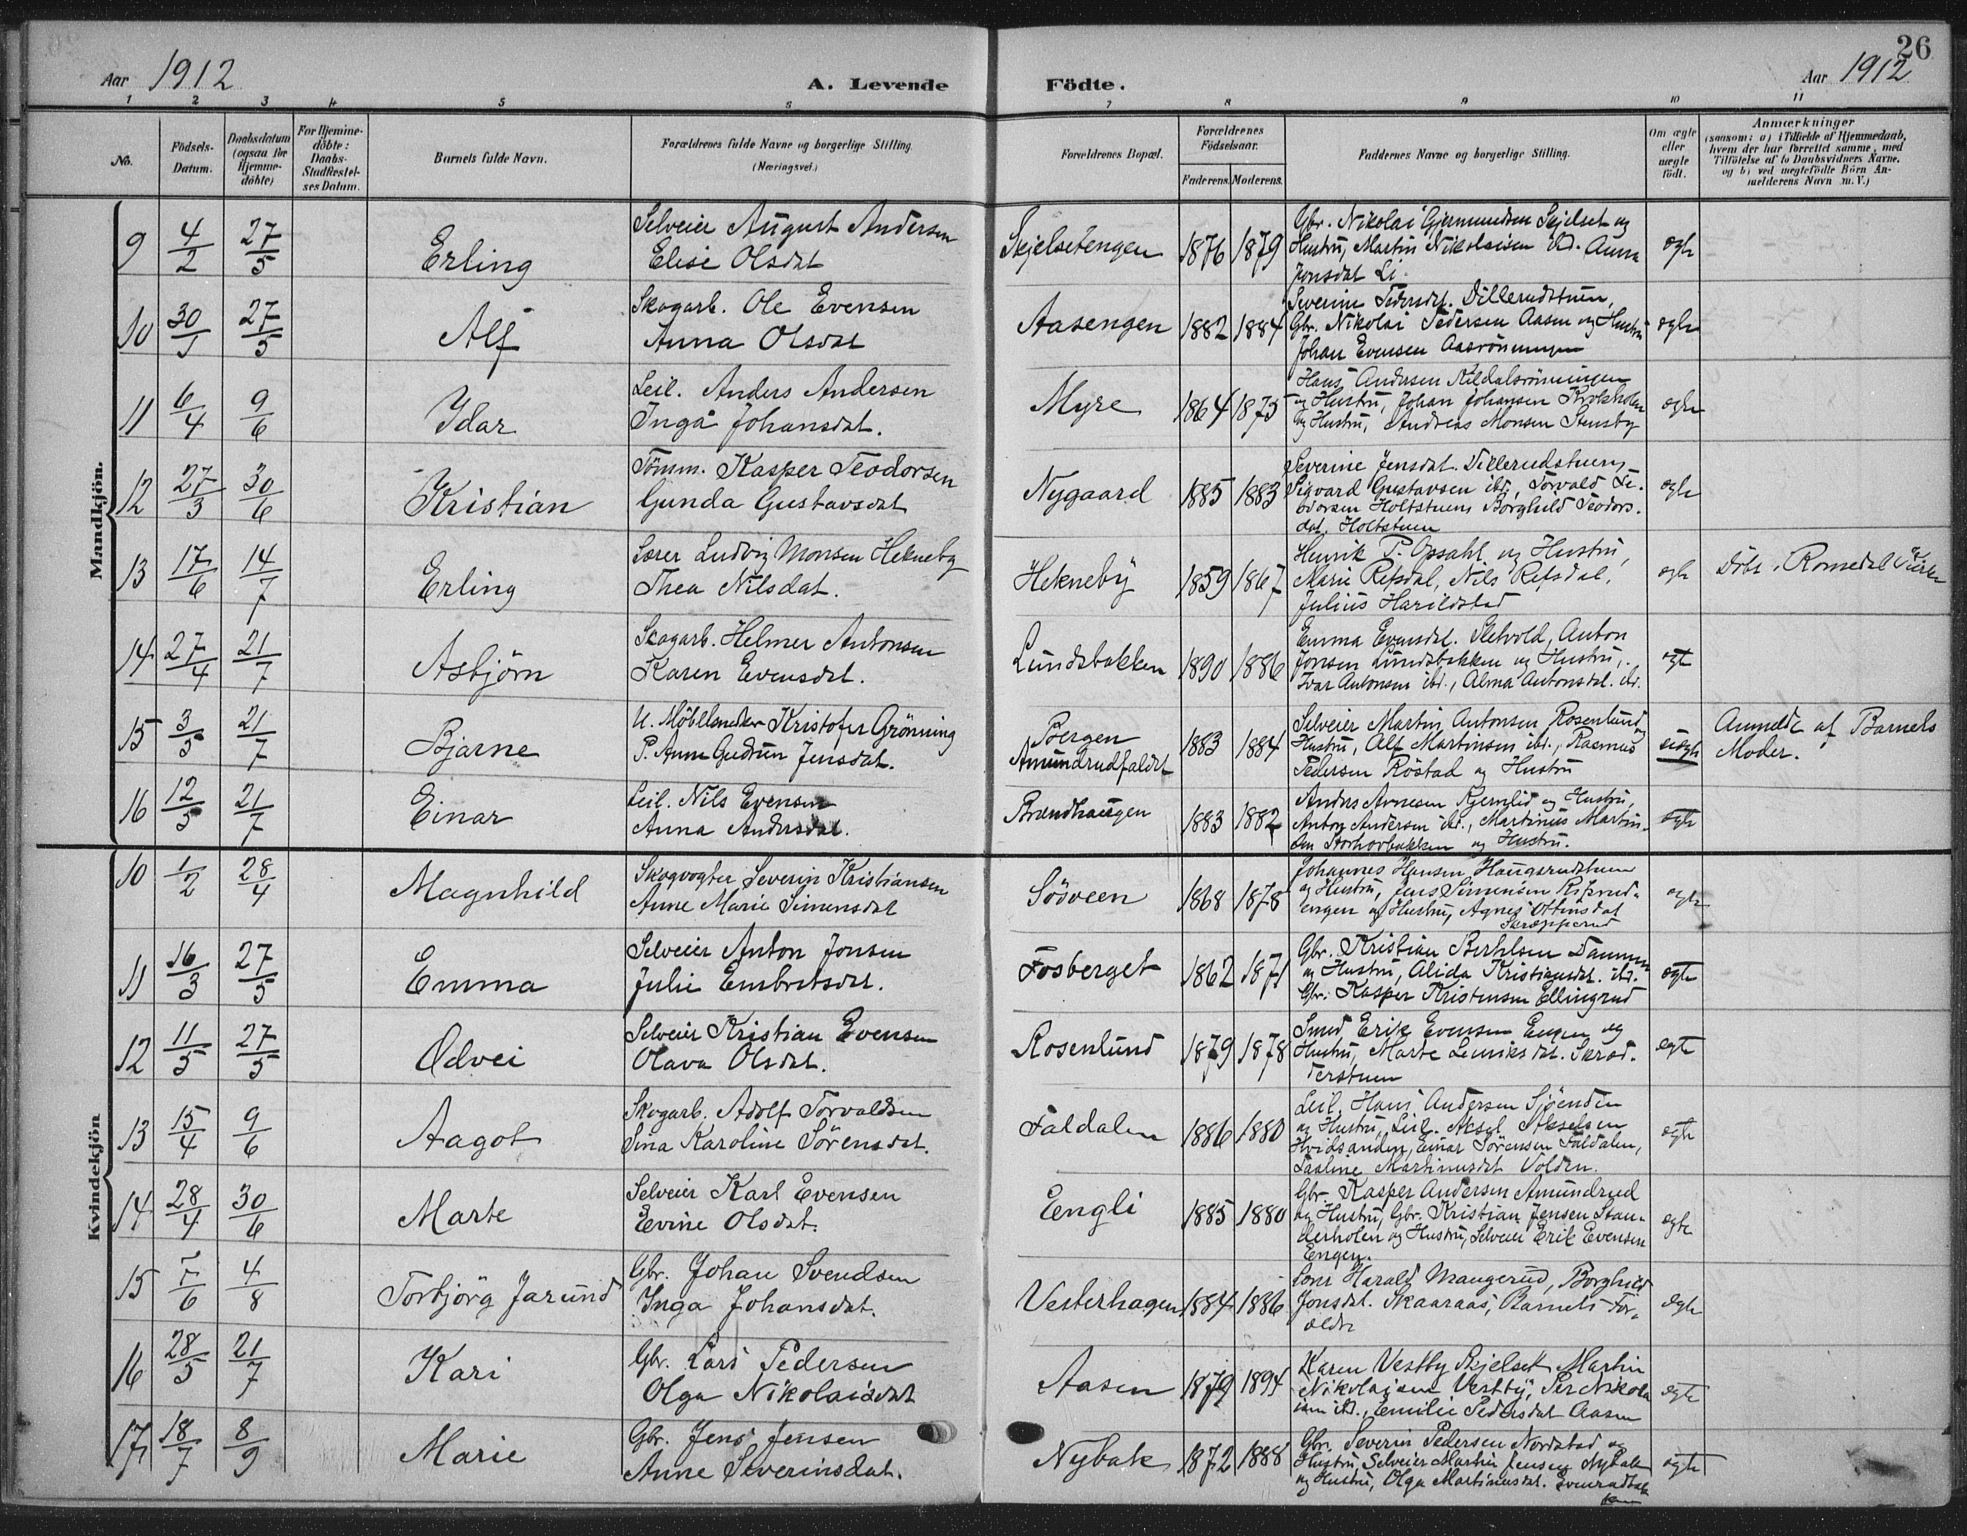 26
Aar 1912 A. Levende Födte. Aar 1912
1 2 3 4 5 6 7 8 9 10 11
No. Födsels-Datum. Daabsdatum (ogsaa for Hjemmedöbte) For Hjemmedöbte: Daabs-Stadfæstelses Datum. Barnets fulde Navn. Forældrenes fulde Navne og borgerlige Stilling. (Næringsvei.) Forældrenes Bopæl. Forældrenes Födselsaar. Faderens. Moderens. Faddernes Navne og borgerlige Stilling. Om ægte eller uægte födt. Anmærkninger
(saasom: a) i Tilfælde af Hjemmedaab,
hvem der har forrettet samme, med
Tilföielse af to Daabsvidners Navne,
og b) ved uægtefödte Börn An-
melderens Navn m. V.)
Mandkjön.
9 4/2 27/5 Erling Selveier August Andersen
Elise Olsdat Skjelsetengen 1876 1879 Gbr. Nikolai Gjermundsen Skjelset og
Hustru, Martin Nikolaisen ibd. Anna
Jonsdat Li. egte
10 30/1 27/5 Alf Skogarb. Ole Evensen
Anna Olsdat Aasengen 1882 1884 Severine Pedersdt. Dillerudstuen,
Gbr. Nikolai Pedersen Aasen og Hustru
Johan Evensen Aasröningen egte
11 6/4 9/6 Idar Leil. Anders Andersen
Inga Johansdat. Myre 1864 1875 Hans Andersen Kildalsrönningen
og Hustru, Johan Johansen Krokholen
og Hustru, Andreas Monsen Stensby egte
12 27/3 30/6 Kristian Tömm. Kasper Teodorsen
Gunda Gustavsdat Nygaard 1885 1883 Severine Jensdat. Dillerudstuen,
Sigvard Gustavsen ibd., Torvald Te-
odorsen Holtstuen, Borghild Teodors-
dat. Holtstuen egte
13 17/6 14/7 Erling Lærer Ludvig Monsen Hekneby
Thea Nilsdat. Hekneby 1859 1867 Henrik P. Opsahl og Hustru,
Marie Refsdal, Nils Refsdal,
Julius Harildstad egte Döbt i Romedal Kirke
14 27/4 21/7 Asbjörn Skogarb. Helmer Antonsen
Karen Evensdat. Lundsbakken 1890 1886 Emma Evensdat. Sletvold, Anton
Jonsen Lundsbakken og Hustru,
Ivar Antonsen ibd., Alma Antonsdat. ibd. egt
15 3/5 21/7 Bjarne U. Möbelsnedker Kristofer Grönning
P. Anna Gudrun Jensdat. Bergen
Amundrudfaldet 1883 1884 Selveier Martin Antonsen Rosenlund og
Hustru, Alf Martinsen ibd., Rasmus
Pedersen Röstad og Hustru uegte Anmeldt af Barnets
Moder.
16 12/5 21/7 Einar Leil. Nils Evensen
Anna Andersdat. Brandhaugen 1883 1882 Anders Arnesen Kjernlid og Hustru,
Anton Andersen ibd., Martinus Martin-
sen Storhovbakken og Hustru. egte
Kvindekjön
10 1/2 28/4 Magnhild Skogvogter Severin Kristiansen
Anne Marie Simensdat Sööveen 1868 1878 Johannes Hansen Haugsrudstuen
og Hustru, Jens Simensen Risrud-
engen og Hustru, Agnes Ottinsdat
Skræpperud egte
11 16/3 27/5 Emma Selveier Anton Jonsen
Julie Embretsdat. Fosberget 1862 1871 Gbr. Kristian Berthelsen Dammen
og Hustru, Alida Kristiansdat. ibd.
Gbr. Kasper Kristensen Ellingrud egte
12 11/5 27/5 Ødvei Selveier Kristian Evensen
Olava Olsdat. Rosenlund 1879 1878 Smed Erik Evensen Engen og
Hustru, Marte Lenriksdat. Skræd-
derstuen egte
13 15/4 9/6 Aagot Skogarb. Adolf Torvaldsen
Sina Karoline Sörensdat. Faldalen 1886 1880 Leil. Hans Andersen Sjöenden
og Hustru, Leil. Aksel Akselsen
Hvidsanden, Einar Sörensen Faldalen,
Pauline Martinusdat Volden. egte
14 28/4 30/6 Marte Selveier Karl Evensen
Evine Olsdat. Engli 1885 1880 Gbr. Kasper Andersen Amundrud
og Hustru, Gbr. Kristian Jensen Stan-
derholen og Hustru, Selveier Erik Evensen
Engen. egte
15 7/6 4/8 Torbjörg Jarund Gbr. Johan Svendsen
Inga Johansdat. Vesterhagen 1884 1886 Harald Mangerud, Borghild
Jonsdat. Skaaraas, Barnets For-
ældre egte
16 28/5 21/7 Kari Gbr. Lars Pedersen
Olga Nikolaisdat Aasen 1879 1894 Karen Vestby Skjelset, Martin
Nikolaisen Vestby, Per Nikola-
isen ibd., Emilie Pedersdat Aasen egte
17 18/7 8/9 Marie Gbr. Jens Jensen
Anne Severinsdat. Nybak 1872 1888 Gbr. Severin Pedersen Nordstad og
Hustru, Selveier Martin Jensen Nybak
og Hustru, Olga Martinusdat. egte